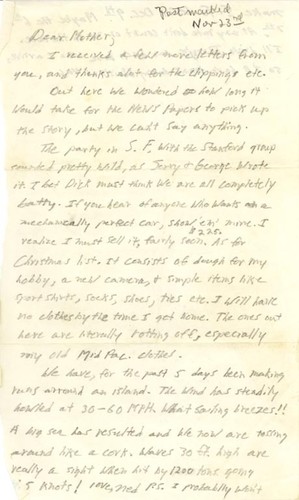 Postmarked
Nov 23rd
Dear Mother,
I received a few more letters from
you, and thanks a lot for the clippings etc.
Out here we wondered how long it
would take for the News Papers to pick up
the story, but we can't say anything.
The party in S.F. with the Stanford group
sounded pretty wild, as Jerry & George wrote
it. I bet Dick must think we are all completely
batty. If you hear of anyone who wants a
mechanically perfect car, show 'em' mine. I
$225.
realize I must sell it, fairly soon. As for
Christmas list. It consists of dough for my
hobby, a new camera, & simple items like
sport shirts, socks, shoes, ties etc. I will have
no clothes by the time I get home. The ones out
here are literally rotting off, especially
my old Mid Pac. clothes.
We have, for the past 5 days been making
runs around an island. The wind has steadily
howled at 30-60 MPH. What Sailing breezes!!
A big sea has resulted and we now are tossing
around like a cork. Waves 30 ft. high are
really a sight when hit by 1200 tons going
15 knots! P.S. I probably won't